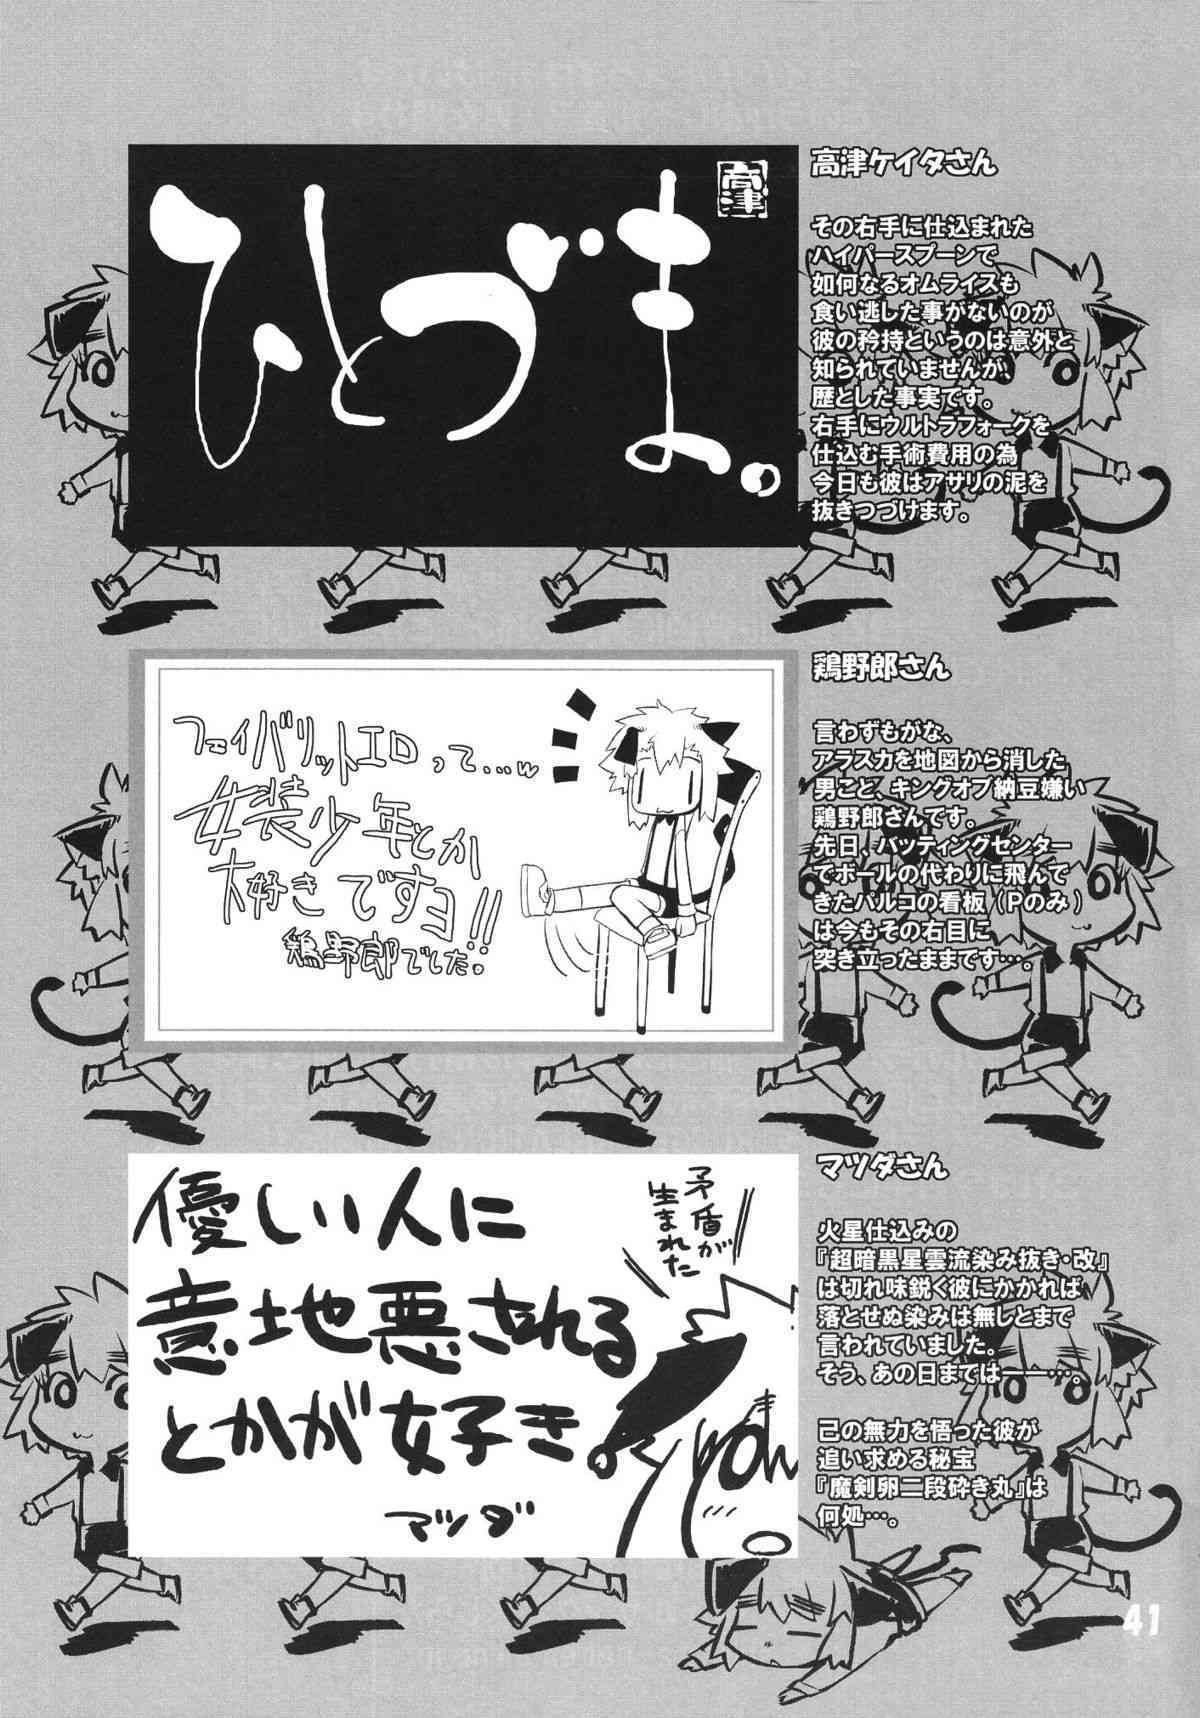 高津ケイタさん
その右手に仕込まれた
ハイパースプーンで
如何なるオムライスも
食い逃した事がないのが
彼の矜持というのは意外と
知られていませんが、
歴とした事実です。
右手にウルトラフォークを
仕込む手術費用の為
今日も彼はアサリの泥を
抜きつづけます。
高津
ひとづま。
鶏野郎さん
言わずもがな、
アラスカを地図から消した
男こと、キングオブ納豆嫌い
鶏野郎さんです。
先日、バッティングセンター
でボールの代わりに飛んで
きたパルコの看板（Pのみ）
は今もその右目に
突き立ったままです…。
フェイバリットエロって…w
女装少年とか
大好きですヨ!!
鶏野郎でした。
マツダさん
火星仕込みの
『超暗黒星雲流染み抜き・改』
は切れ味鋭く彼にかかれば
落とせぬ染みは無しとまで
言われていました。
そう、あの日までは——…。
己の無力を悟った彼が
追い求める秘宝
『魔剣卵二段砕き丸』は
何処…。
優しい人に
意地悪される
とかが好き。
マツダ
矛盾が
生まれた
41